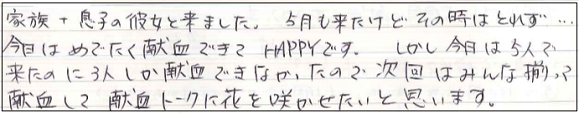 家族+息子の彼女と来ました。5月も来たけどその時はとれず…
今日はめでたく献血できてHAPPYです。しかし今日は5人で
来たのに3人しか献血できなかったので次回はみんな揃って
献血して献血トークに花を咲かせたいと思います。